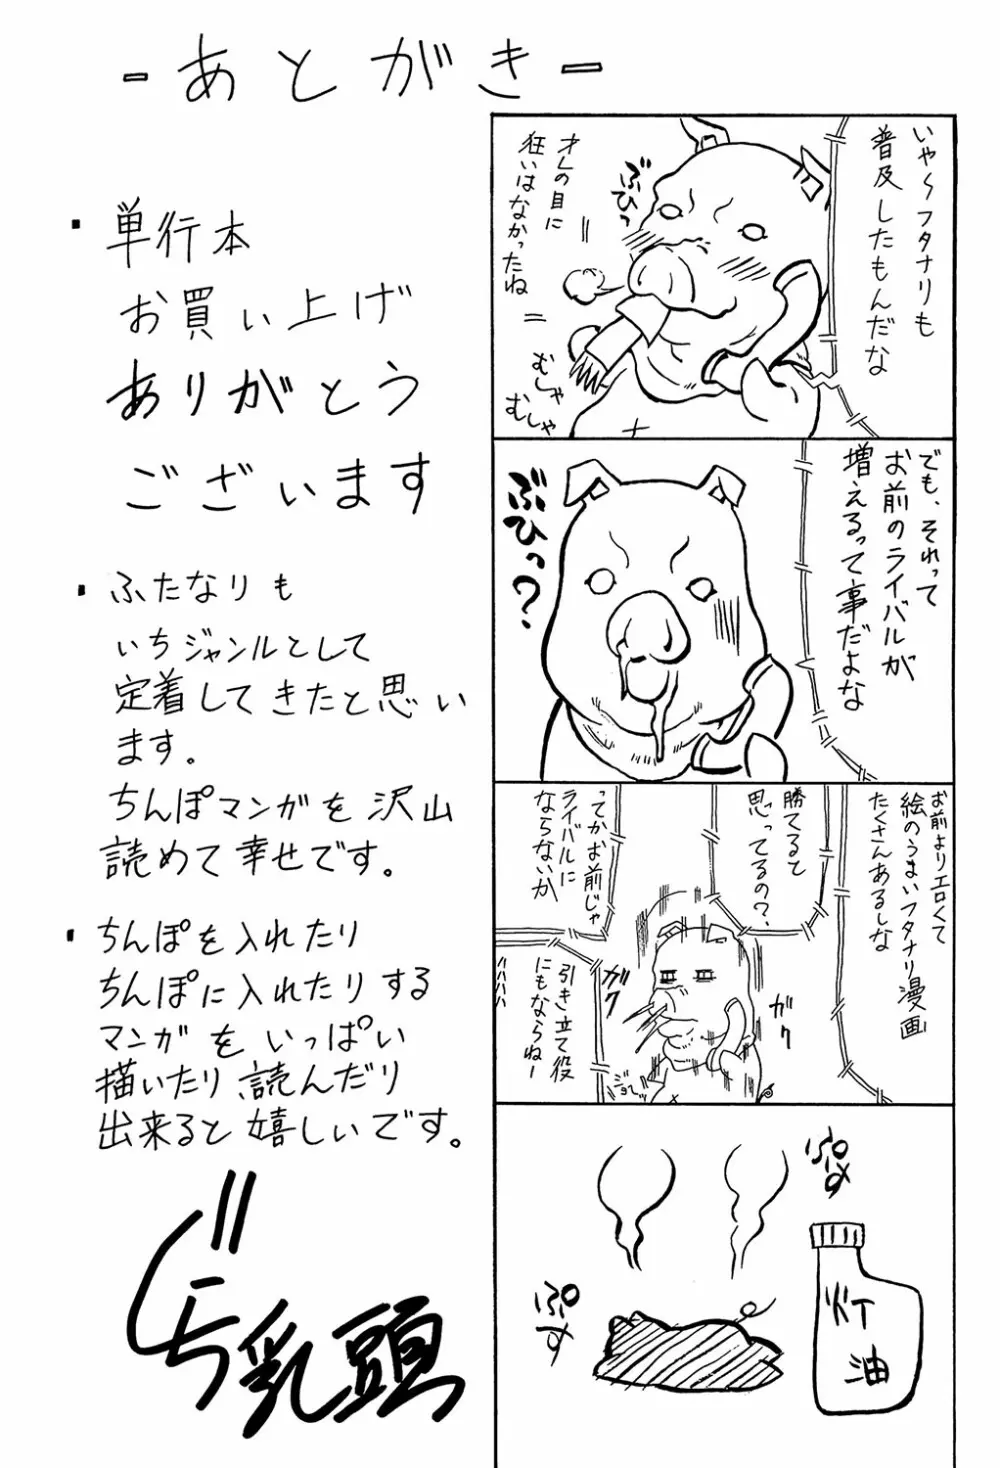 -あとがき-
・単行本
お買い上げ
ありがとう
ございます
・ふたなりも
いちジャンルとして
定着してきたと思い
ます。
ちんぽマンガを沢山
読めて幸せです。
・ちんぽを入れたり
ちんぽに入れたりする
マンガをいっぱい
描いたり、読んだり
出来ると嬉しいです。
乳頭
いや〜フタナリも
普及したもんだな
ぶひっ
オレの目に
狂いはなかったね
むしゃ
むしゃ
でも、それって
お前のライバルが
増えるって事だよな
ぶひっ?
お前よりエロくて
絵のうまいフタナリ漫画
たくさんあるしな
勝てると
思ってるの?
ってかお前じゃ
ライバルに
ならないか
引き立て役
にもならねー
ハハハハ
ガク
ガク
ぷす
ぷす
灯油